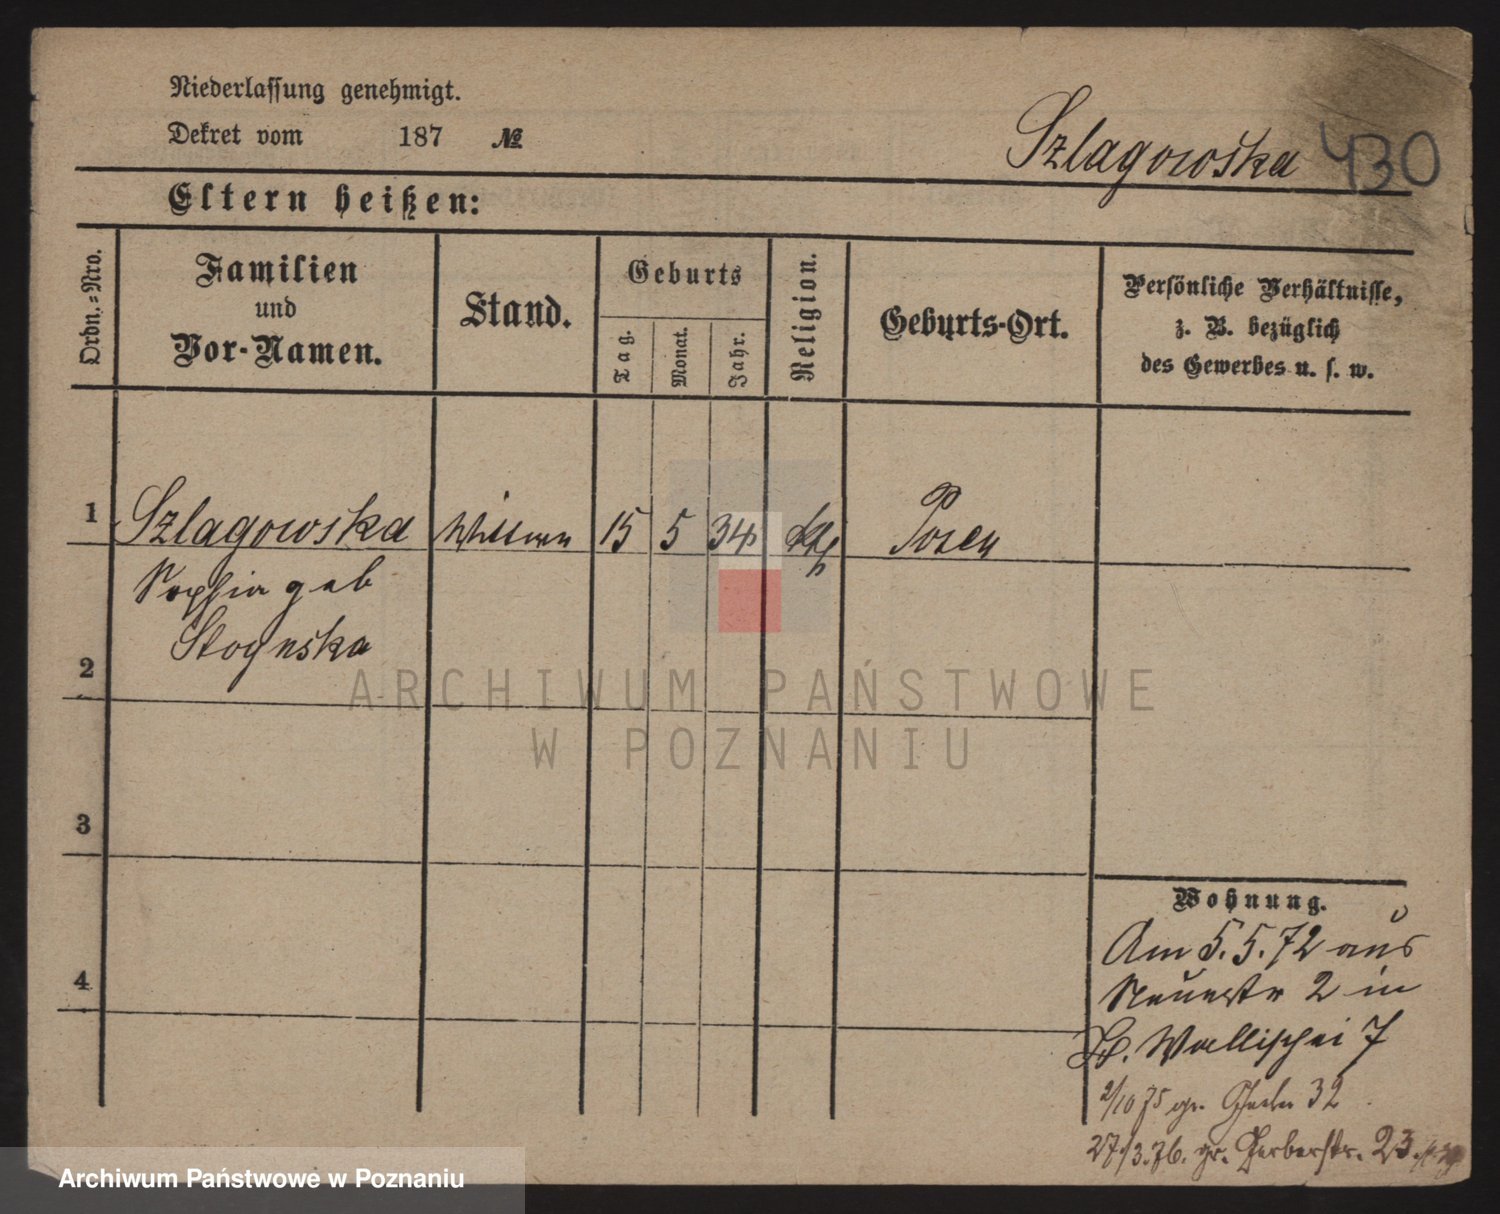 Niederlassung genehmigt.
Dekret vom 187 №
Szlagowska 430
Eltern heißen:
Ordn.=Nro.
Familien
und
Vor-Namen.
Stand.
Geburts
Tag.
Monat.
Jahr.
Religion.
Geburts-Ort.
Persönliche Verhältnisse,
z. B. bezüglich
des Gewerbes u. s. w.
1 Szlagowska Wittwe 15 5 34 kth Posen
Sophia geb
2
3
4
Wohnung.
Am 5.5.72 aus
Neuestr 2 in
Wallischei 7
2/10 75 gr. 32
27./3.76. gr. Gerberstr. 23
ARCHIWUM PAŃSTWOWE
W POZNANIU
Archiwum Państwowe w Poznaniu